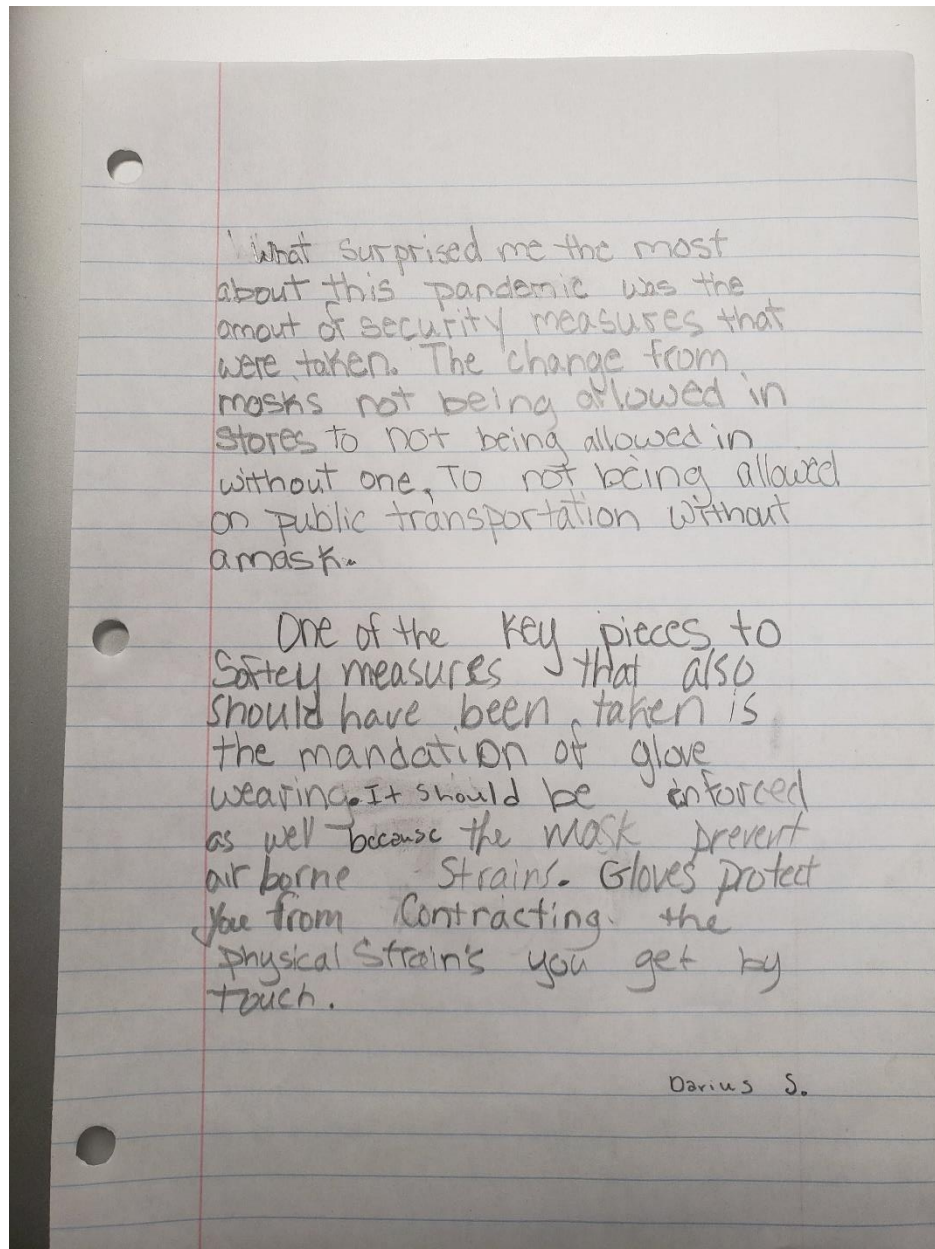 What surprised me the most
about this pandemic was the
amout of security measures that
were taken. The change from
masks not being allowed in
stores to not being allowed in
without one, To not being allowed
on public transportation without
a mask.
One of the key pieces to
Saftey measures that also
should have been taken is
the mandation of glove
wearing. It should be enforced
as well because the mask prevent
air borne Strains. Gloves protect
you from Contracting the
physical Strain's you get by
touch.
Darius S.